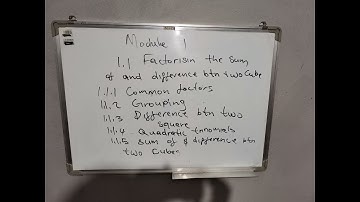 Module 1
1.1 Factorisin the sum
of and difference btn two Cube
1.1.1 Common factors
1.1.2 Grouping
1.1.3 Difference btn two
square
1.1.4 Quadratic trinomials
1.1.5 Sum of & difference btn
two Cube